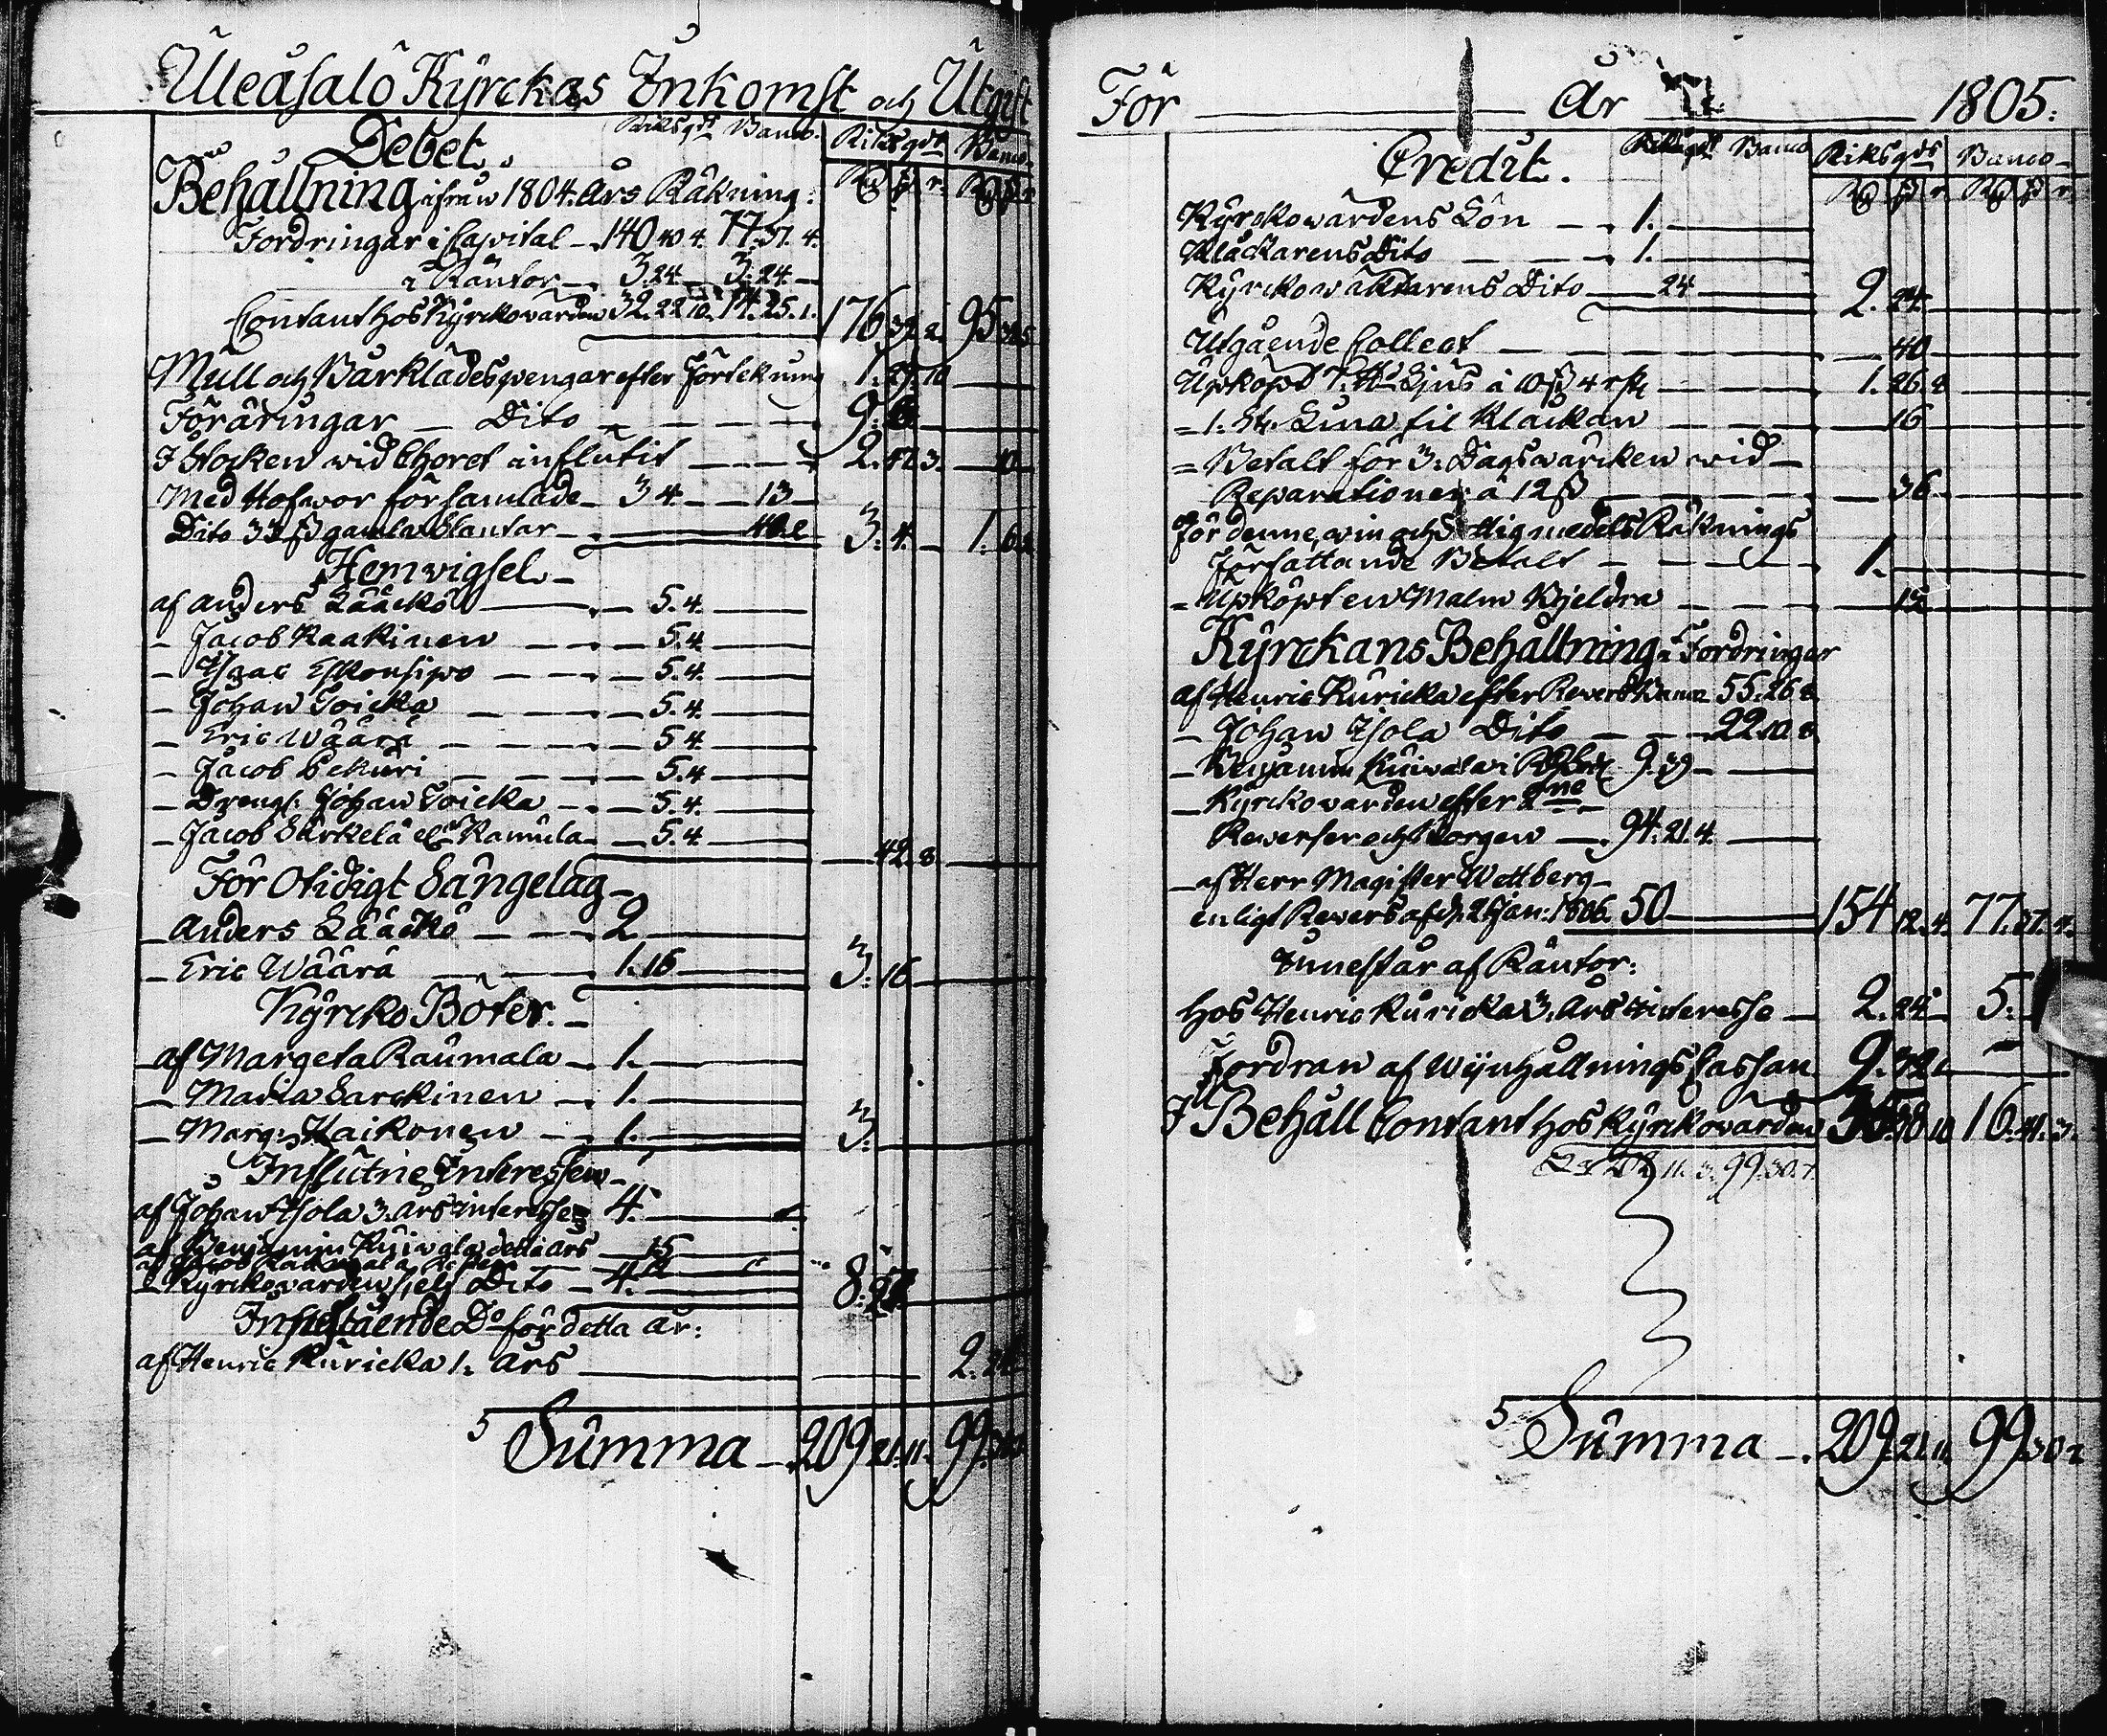 Uleåsalo Kyrckas Inkomst och Utgift
Debet. Riksgds Banco. Riksgds Banco.
Behållning ifrån 1804. Års Räkning:
Fordringar i Capital 140 40 4. 77. 37. 4.
i Räntor 3. 24 3. 24.
Contant hos Kyrckowärden 32. 22 10. 14. 25. 1. 176 39. 2. 95
Mull och Bårklädespengar efter Förtekning 1. 10
Föräringar Dito 9.
I Stocken wid Choret influtit 2. 3. 10
Med Hofwor församlade 34 13
Dito 33 ß gamla Slantar 3. 4. 1.
Hemwigsel
af Anders Lääckö 5. 4.
Jacob Kaakinen 5. 4.
Isaac 5. 4.
Johan Toicka 5. 4.
Eric Wäärä 5 4.
Jacob Pekuri 5. 4
Drengl: Johan Toicka 5. 4.
Jacob Särkelä Kamula 5. 4. 42. 8
För Otidigt Sängelag
Anders Lääckö 2
Eric Wäärä 1. 16 3. 16
Kyrcko Böter.
af Margeta Raumala 1.
Maria Sarckinen 1.
Marg: Haikonen 1. 3.
Influtne Interessen
af Johan Isola 3. Års interesse 4.
af Benjamin detta års 15
af Jacob
Kyrckowärden sielf Dito 4. 8.
Innestående Do för detta år:
af Henric Kuricka 1. Års 2. 24
Summa 209 21. 11. 99
För År 1805.
Credit. Riksgds Banco Riksgds Banco
Kyrckowärdens Lön 1.
Klåckarens Dito 1.
Kyrckowäktarens Dito 24 2. 24
Utgående Collect 40
Upköpt 7. Ljus à 10 ß 4 rst 1. 26. 8
1. St. Lina til Klåckan 16
Betalt för 3. Dagswärcken wid
Reparationer à 12 ß 36
För denne, win och Fattigmedels Räknings
Författande Betalt 1.
Upköpt en Malm Kjeldra 12
Kyrckans Behållning i Fordringar
af Henric Kuricka efter Revers Banco 55. 26 8
Johan Isola Dito 22. 10. 8
Benjamin 9. 39
Kyrckowärden efter 2ne
Reverser och Borgen 94. 21. 4.
af Herr Magister Wettberg
enligt Revers af d. 2 Jan: 1806. 50 154 12. 4. 77. 37. 4.
Innestår af Räntor:
hos Henric Kuricka 3. Års Interesse 2. 24 5.
Fordran af Wijnhållnings Cassan 9.
I Behåll Contant hos Kyrckowärden 10 16. 41. 3.
Summa 209. 21. 11. 99. 30 7